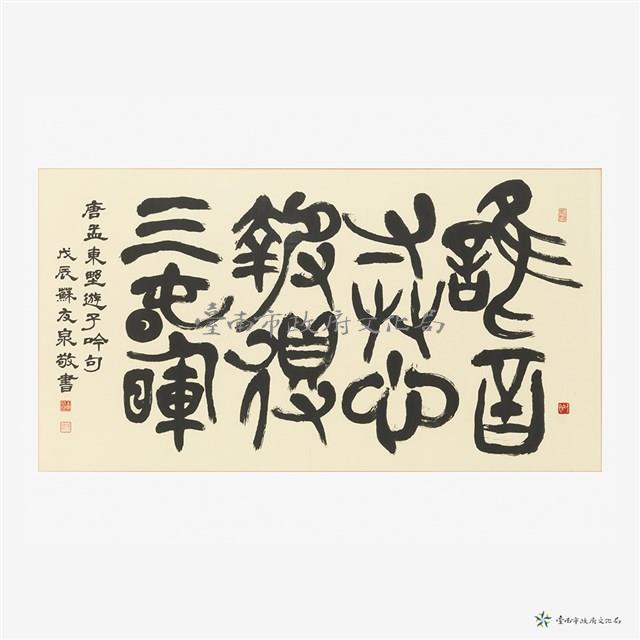 誰言
寸艸心
報得
三春暉
唐孟東野遊子吟句
戊辰蘇友泉敬書
臺南市政府文化局
臺南市政府文化局